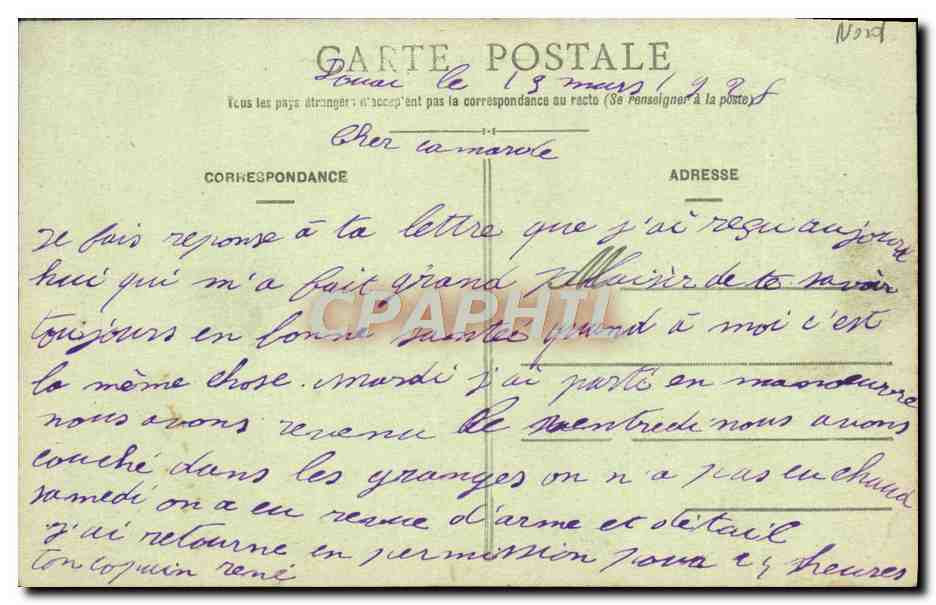 Nord
CARTE POSTALE
Douai le 13 mars 1928
Tous les pays étrangers n'acceptent pas la correspondance au recto (Se renseigner à la poste)
Cher camarade
CORRESPONDANCE
ADRESSE
Je fais reponse à ta lettre que j'ai reçu aujourd
hui qui m'a fait grand plaisir de te savoir
toujours en bonne santée quand à moi c'est
la même chose. Mardi j'ai parti en manoeuvre
nous avons revenu le ventredi nous avions
couché dans les granges on n'a pas eu chaud
samedi on a eu revue d'arme et détail
j'ai retourne en permission pour 24 heures
ton copain rené
CPAPHIL